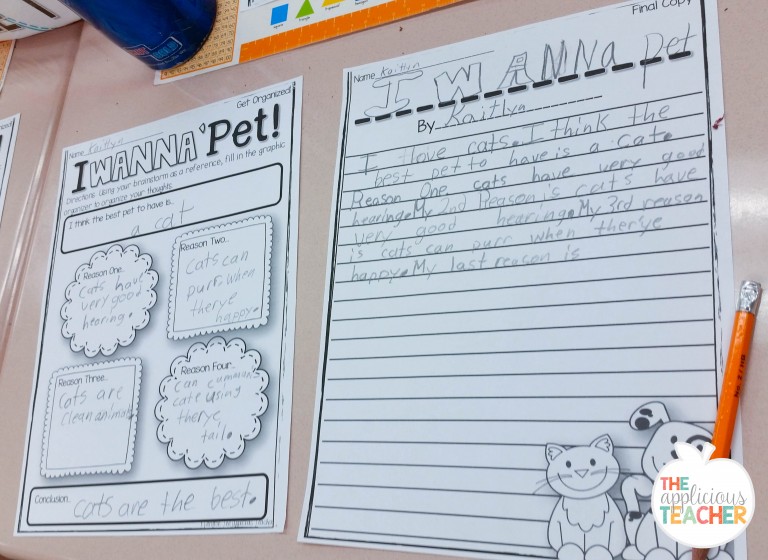 Get Organized!
Name Kaitlyn
I WANNA Pet!
Directions: Using your brainstorm as a reference, fill in the graphic
organizer to organize your thoughts.
I think the best pet to have is...
a cat
Reason One...
cats have
very good
hearing.
Reason Two...
Cats can
purr when
therye
happy.
Reason Three...
Cats are
clean animals
Reason Four...
can cummuni
cate using
therye
tail.
Conclusion...
cats are the best.
Final Copy
Name Kaitlyn
I WANNA Pet
By Kaitlyn
I love cats. I think the
best pet to have is a cat.
Reason One cats have very good
hearing. My 2nd Reason is cats have
very good hearing. My 3rd reason
is cats can purr when therye
happy. My last reason is
THE
applicious
TEACHER